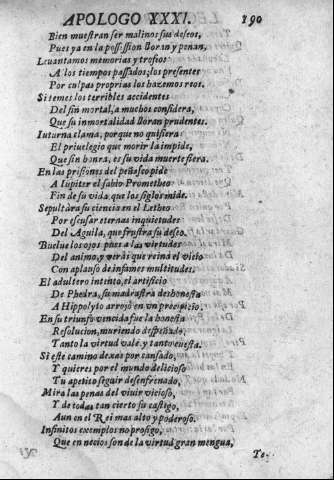 APOLOGO XXXI. 190
Bien muestran ser malinos sus deseos,
Pues ya en la possession lloran y penan,
Leuantamos memorias y trofeos
A los tiempos passados; los presentes
Por culpas proprias los hazemos reos.
Si temes los terribles accidentes
Del sin mortal, a muchos considera,
Que su inmortalidad lloran prudentes.
Iuturna clama, porque no quisiera
El priuelegio que morir la impide,
Que sin honra, es su vida muerte fiera.
En las prisiones del peñasco pide
A Iupiter el sabio Prometheo
Fin de su vida, que los siglos mide.
Sepultara su ciencia en el Letheo
Por escusar eternas inquietudes
Del Aguila, que frustra su deseo.
Buelue los ojos pues a las virtudes
Del animo, y verás que reina el vicio
Con aplauso de infames multitudes.
El adultero intento, el artificio
De Phedra, su madrastra deshonesta
A Hippolyto arrojò en vn precipicio.
En su triunfo vencida fue la honesta
Resolucion, muriendo despeñado,
Tanto la virtud vale y tanto cuesta.
Si este camino dexas por cansado,
Y quieres por el mundo delicioso
Tu apetito seguir desenfrenado,
Mira las penas del viuir vicioso,
Y de todas tan cierto su castigo,
Aun en el Rei mas alto y poderoso.
Infinitos exemplos no prosigo,
Que en necios son de la virtud gran mengua,
To-